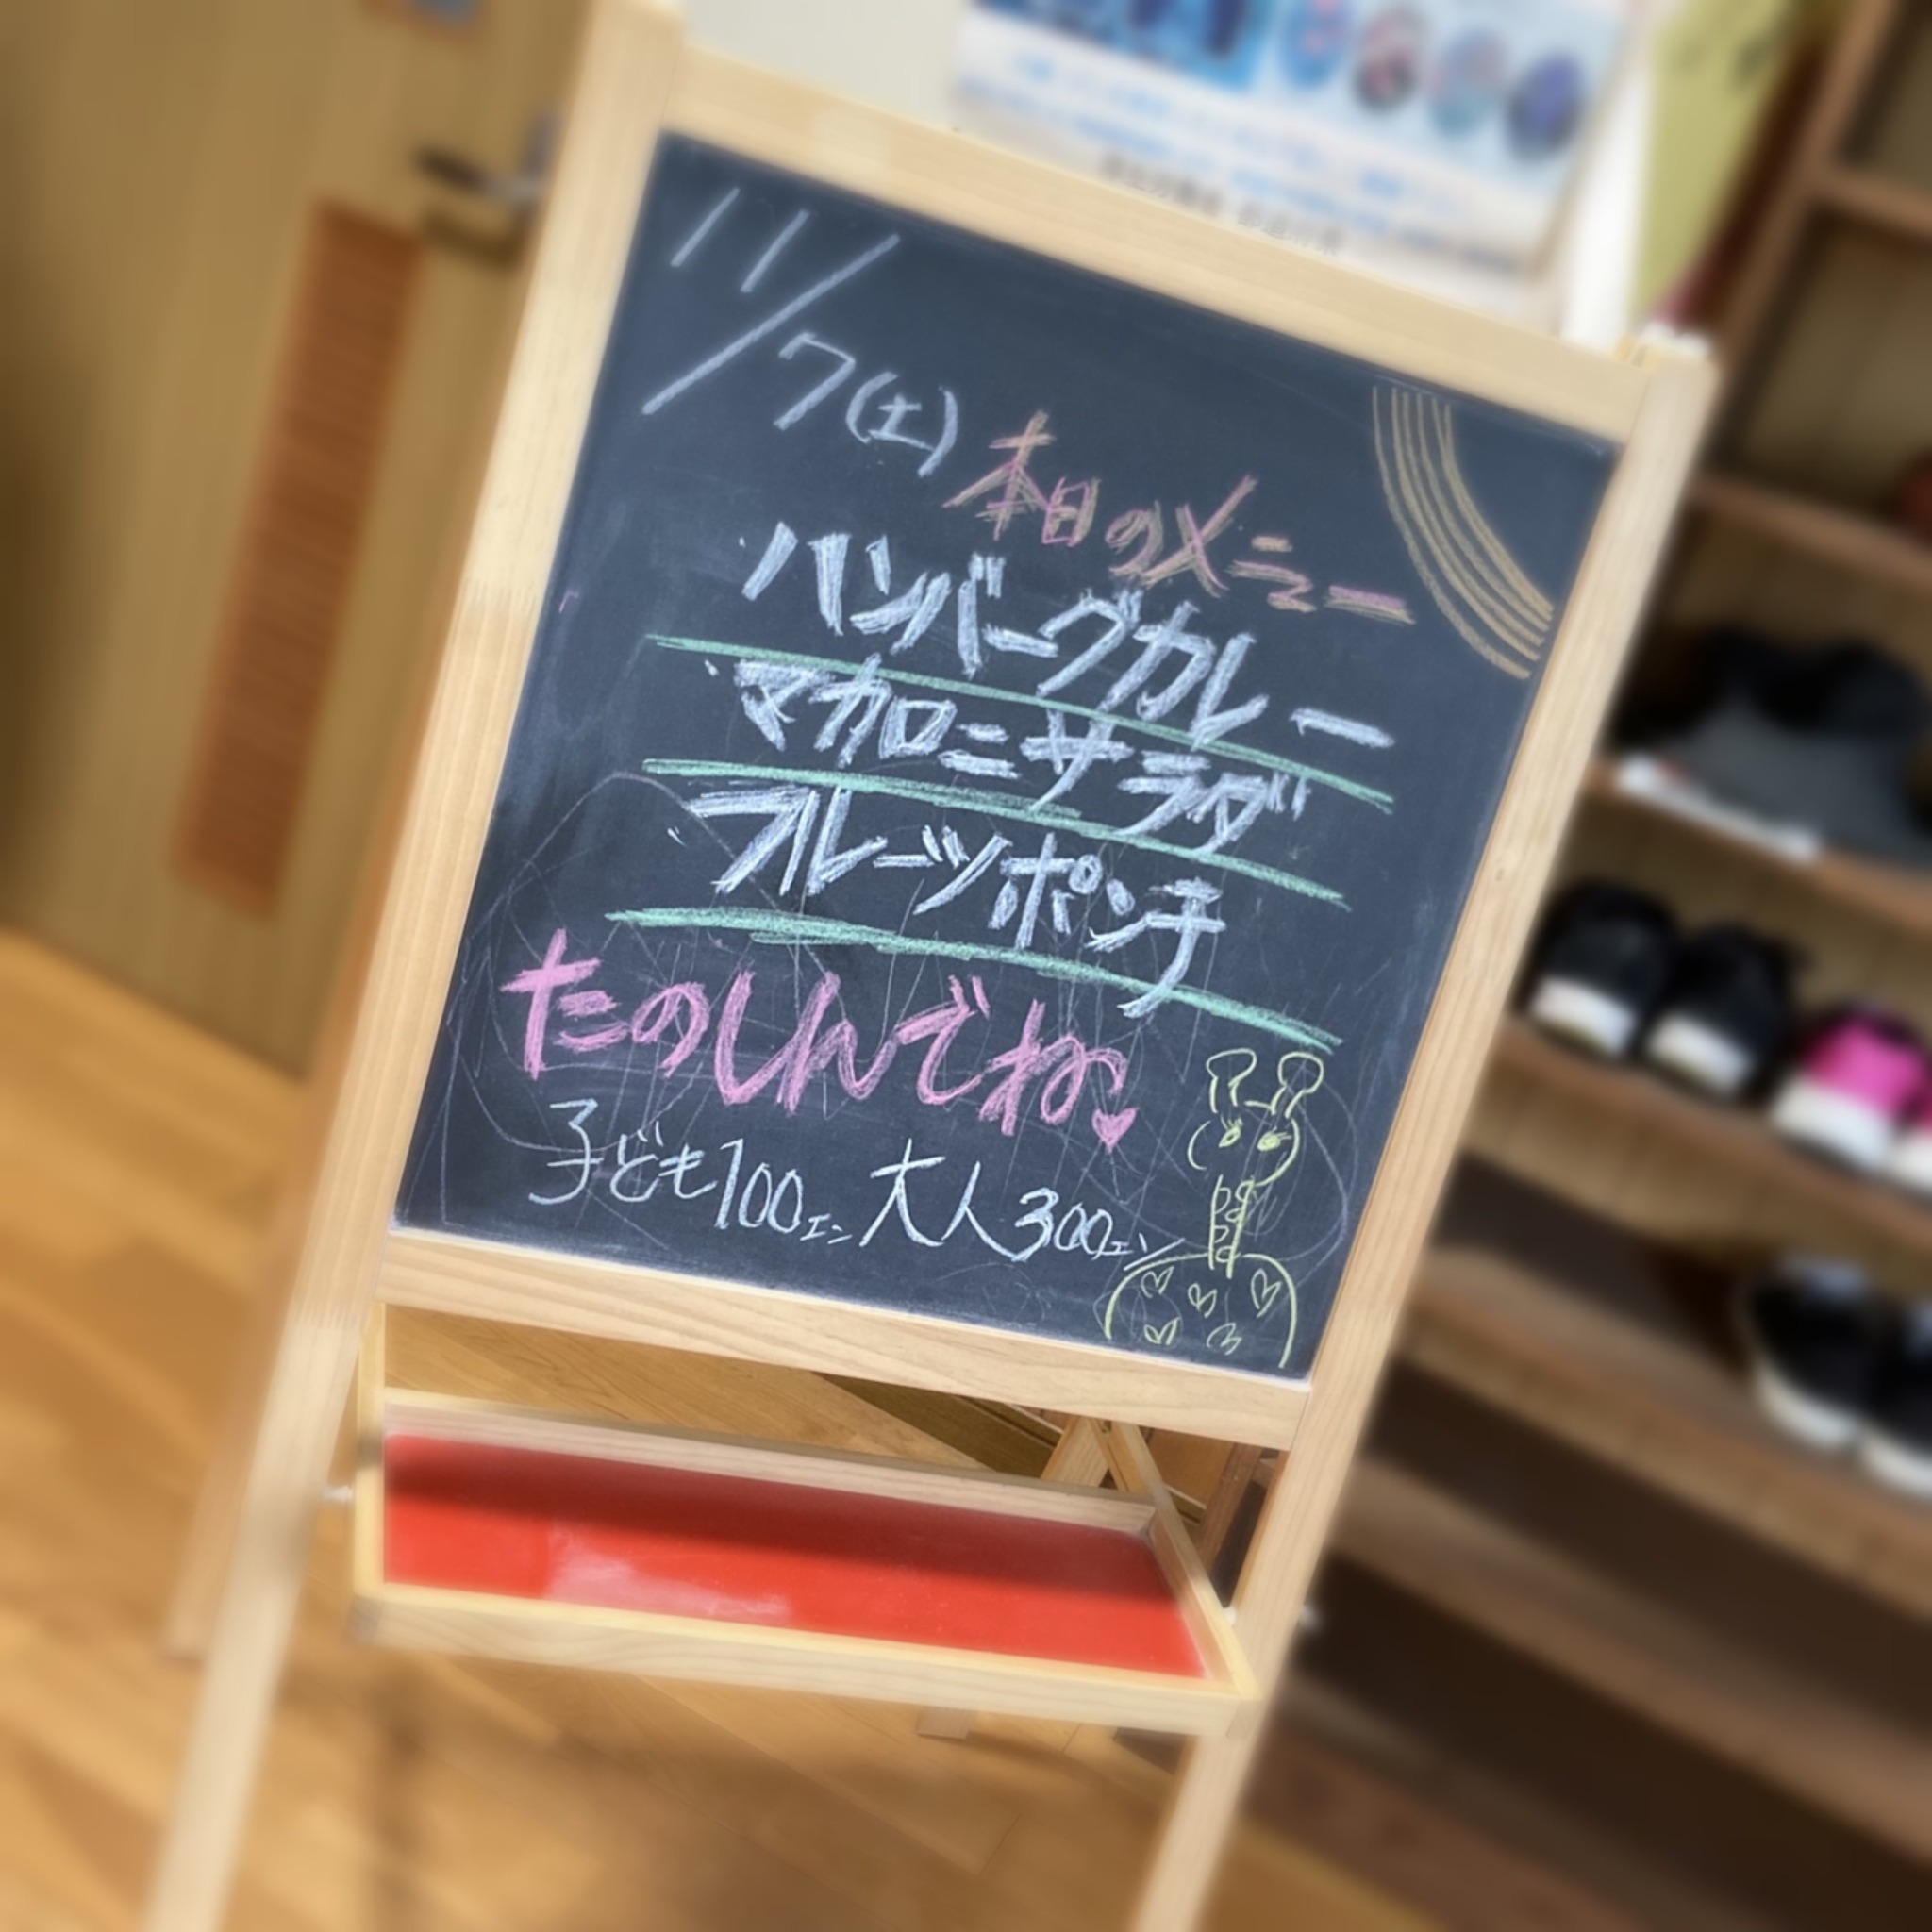 11/7(土)
本日のメニュー
ハンバーグカレー
マカロニサラダ
フルーツポンチ
たのしんでね♥
子ども100エン 大人300エン